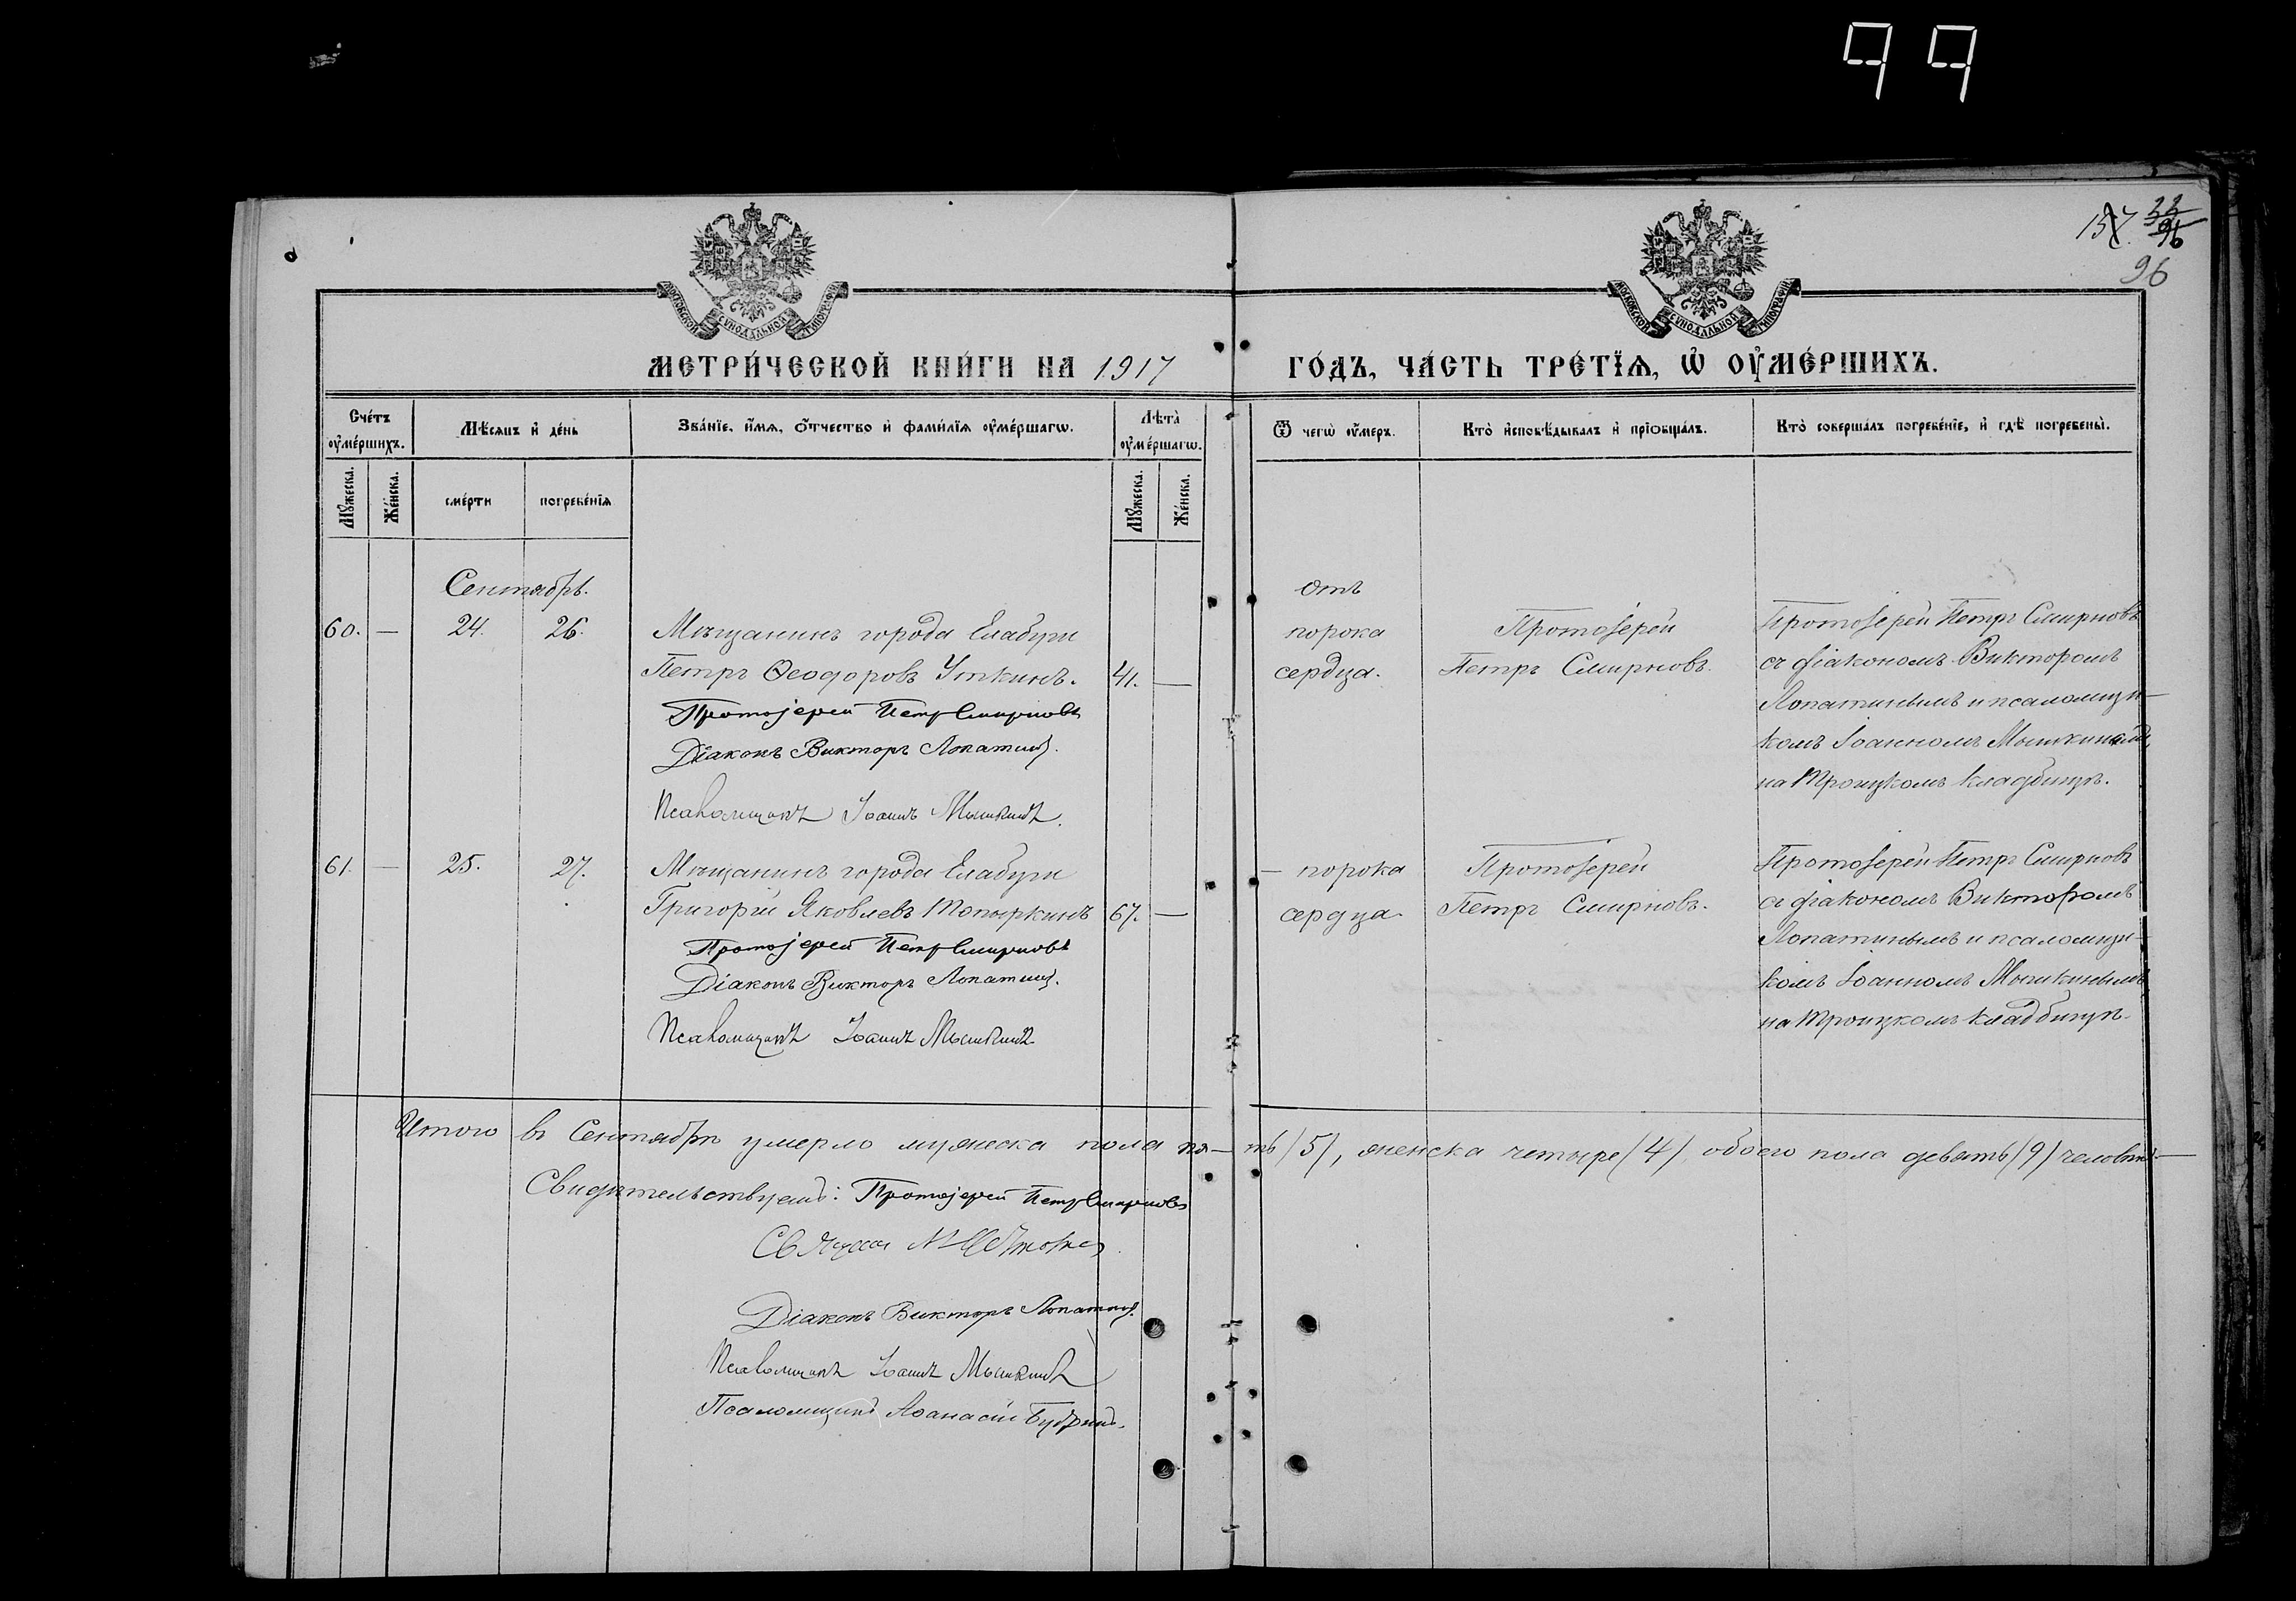 99
137. 33
96
96
МОСКОВСКОЙ СУНОДАЛЬНОЙ ТИПОГРАФІИ
МОСКОВСКОЙ СУНОДАЛЬНОЙ ТИПОГРАФІИ
МЕТРИ́ЧЕСКОЙ КНИ́ГИ НА 1917 ГО́ДЪ, ЧА́СТЬ ТРЕ́ТЇѦ, Ѡ ОУМЕ́РШИХЪ.
Сче́тъ оуме́ршихъ.
Мѣ́сяцъ и де́нь
Зва́нїе, и́мѧ, о́тчество и фами́лїѧ оуме́ршагѡ.
Лѣта̀ оуме́ршагѡ.
Ѿ чегѡ̀ оу́меръ.
Кто̀ исповѣ́дывалъ и прїобща́лъ.
Кто̀ соверша́лъ погребе́нїе, и гдѣ̀ погребены̀.
Мꙋ́жеска.
Же́нска.
сме́рти
погребе́нїѧ
Мꙋ́жеска.
Же́нска.
Сентябрь.
60. — 24. 26. Мѣщанинъ города Елабуги
Петръ Ѳеодоровъ Уткинъ. 41. —
Протоіерей Петръ Смирновъ
Діаконъ Викторъ Лопатинъ.
Псаломщикъ Іоаннъ Мышкинъ.
отъ
порока
сердца.
Протоіерей
Петръ Смирновъ.
Протоіерей Петръ Смирновъ
съ діакономъ Викторомъ
Лопатинымъ и псаломщи-
комъ Іоанномъ Мышкинымъ,
на Троицкомъ кладбищѣ.
61. — 25. 27. Мѣщанинъ города Елабуги
Григорій Яковлевъ Топыркинъ 67. —
Протоіерей Петръ Смирновъ
Діаконъ Викторъ Лопатинъ.
Псаломщикъ Іоаннъ Мышкинъ.
— порока
сердца.
Протоіерей
Петръ Смирновъ.
Протоіерей Петръ Смирновъ
съ діакономъ Викторомъ
Лопатинымъ и псаломщи-
комъ Іоанномъ Мышкинымъ
на Троицкомъ кладбищѣ.
Итого въ Сентябрѣ умерло мужеска пола пя-ть (5), женска четыре (4) обоего пола девять (9) человѣкъ.
Свидѣтельствуемъ: Протоіерей Петръ Смирновъ
Діаконъ Викторъ Лопатинъ.
Псаломщикъ Іоаннъ Мышкинъ
Псаломщикъ Аѳанасій